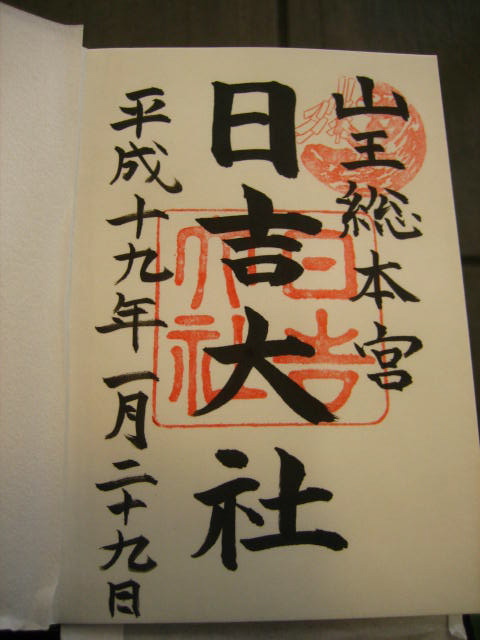 山王総本宮
日吉大社
日吉大社
平成十九年一月二十九日